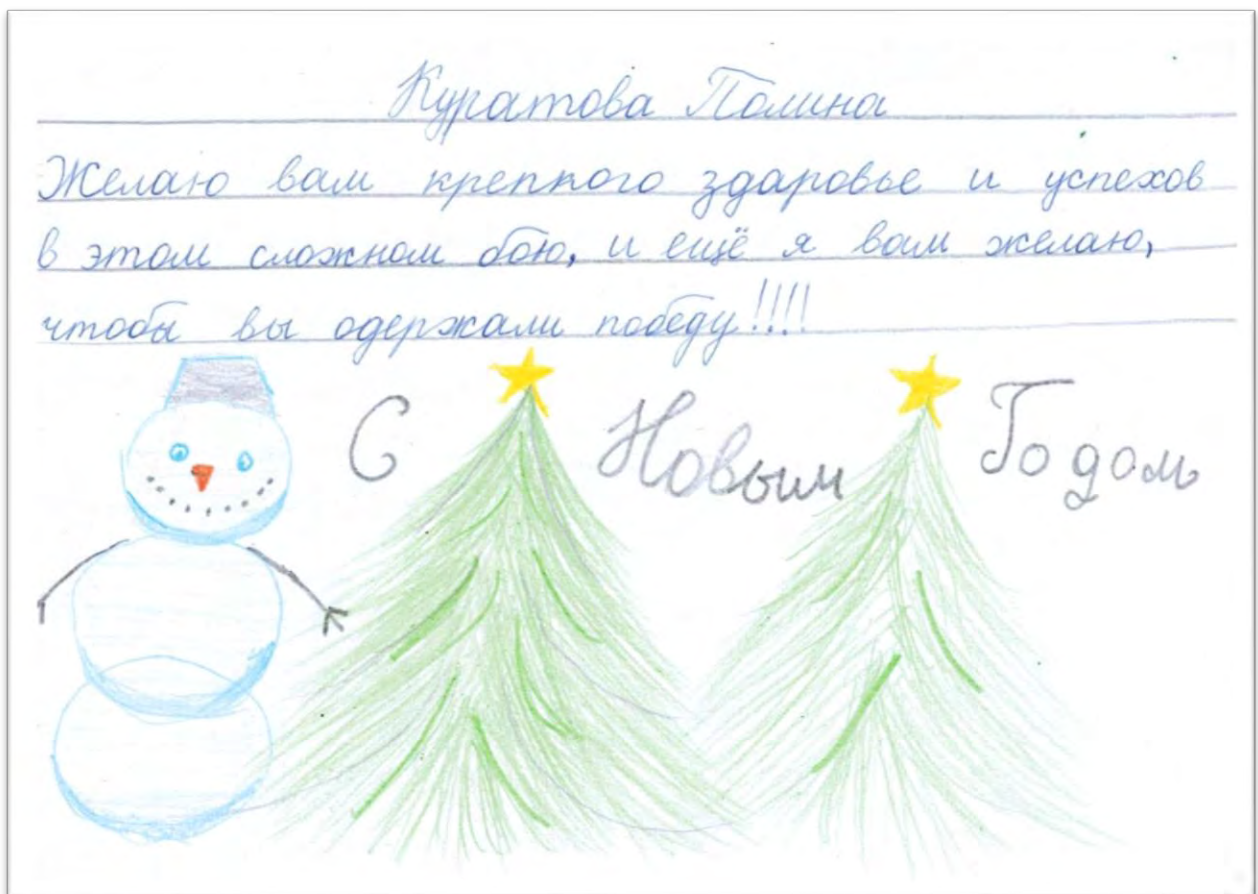 Куратова Полина
Желаю вам крепкого здаровье и успехов
в этом сложном бою, и ещё я вам желаю,
чтобы вы одержали победу!!!!
С Новым Годом